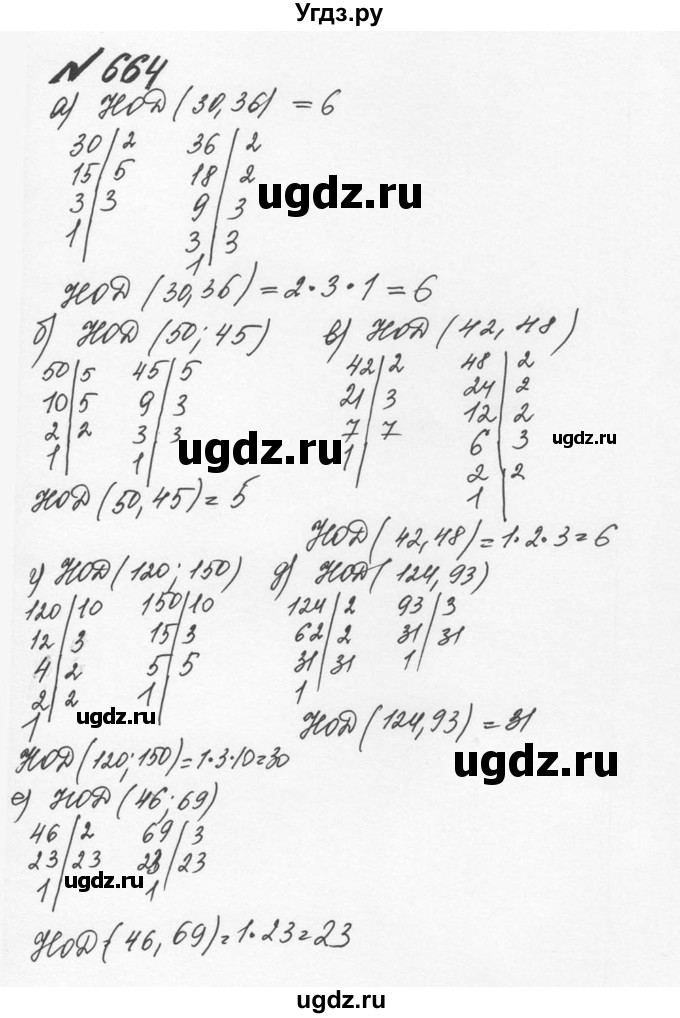 Угдз.ру
№ 664
а) НОД (30,36) = 6
30 | 2 36 | 2
15 | 5 18 | 2
3 | 3 9 | 3
1 | 3 | 3
1
ugdz.ru
НОД (30,36) = 2·3·1 = 6
б) НОД (50; 45) в) НОД (42, 48)
50 | 5 45 | 5 42 | 2 48 | 2
10 | 5 9 | 3 21 | 3 24 | 2
2 | 2 3 | 3 7 | 7 12 | 2
1 | 1 | 1 | 6 | 3
2 | 2
1 |
ugdz.ru
ugdz.ru
НОД (50,45) = 5
НОД (42,48) = 1·2·3 = 6
г) НОД (120; 150) д) НОД (124,93)
120 | 10 150 | 10 124 | 2 93 | 3
12 | 3 15 | 3 62 | 2 31 | 31
4 | 2 5 | 5 31 | 31 1 |
2 | 2 1 | 1 |
1
ugdz.ru
НОД (124,93) = 31
НОД (120; 150) = 1·3·10 = 30
ugdz.ru
е) НОД (46; 69)
46 | 2 69 | 3
23 | 23 23 | 23
1 | 1 |
ugdz.ru
НОД (46, 69) = 1·23 = 23
ugdz.ru